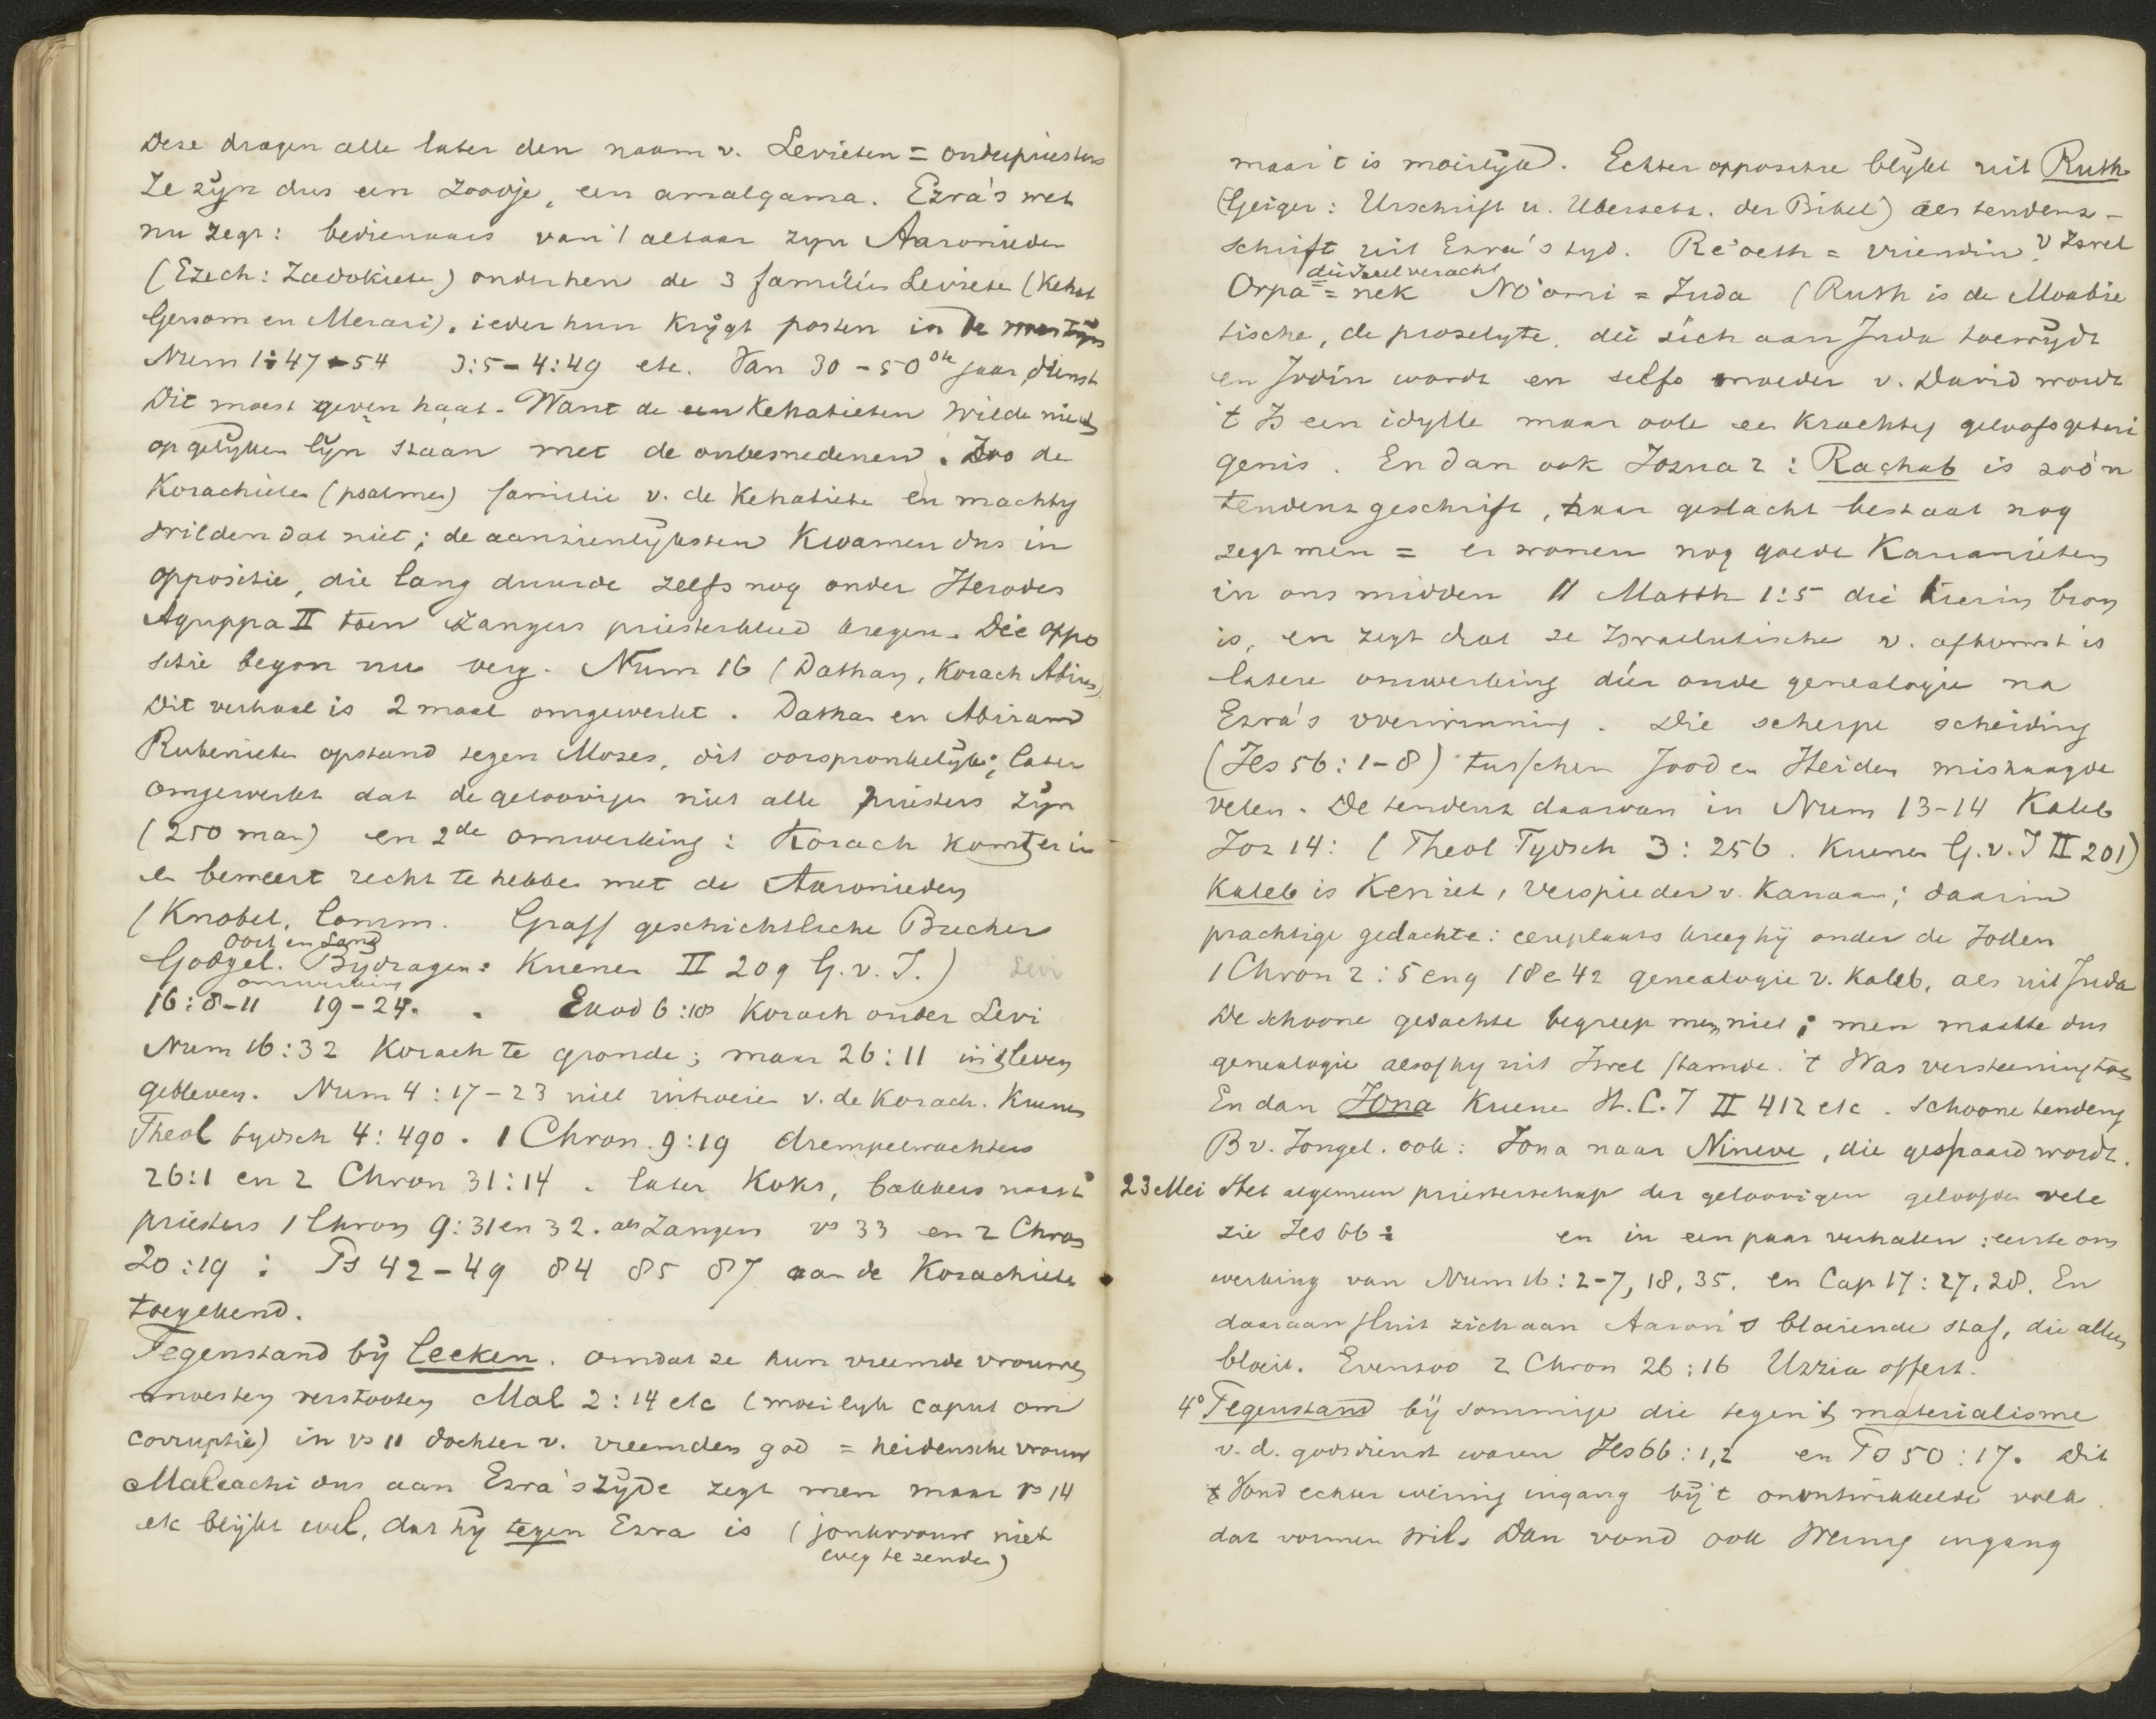 Deze dragen alle later den naam v. Levieten = onderpriesters
Ze zijn dus een zoodje, een amalgama. Ezra's wet
nu zegt: bedienaars van 't altaar zyn Aaronieden
(Ezech: Zadokieten) onder hen de 3 familiën Levieten (Kehat
Gersom en Merari). ieder hun krijgt posten in de
Num 1:47-54 3:5-4:49 etc. Van 30-50ste jaar dienst
Dit moest geven haat. Want de Kehatieten wilde niet
op gelijken lijn staan met de onbesnedenen. Zoo de
Korachieten (psalmen) familie v. de Kehatiete en machtig
wilden dat niet; de aanzienlijksten kwamen dus in
oppositie, die lang duurde zelfs nog onder Herodes
Agrippa II toen zangers priesterkleed kregen. Die oppo
sitie begon nu reeds. Num 16 (Dathan, Korach Abiram)
Dit verhaal is 2 maal omgewerkt. Dathan en Abiram
Rubenieten opstand tegen Mozes, dit oorspronkelijk; later
omgewerkt dat de geloovige niet alle priesters zijn
(250 man) en 2de omwerking: Korach komt er in
en beweert recht te hebben met de Aaronieden
(Knobel, Comm. Graff geschichtliche Bucher
Oort en Land
Godgel. Bijdragen: Kuenen II 209 G. v. I.) Levi
omwerking
16:8-11 19-24. Exod 6:18 Korach onder Levi
Num 16:32 Korach te gronde; maar 26:11 in 't leven
gebleven. Num 4:17-23 niet uitroeien v. de Korach. Kuenen
Theol tydsch 4:490. 1 Chron. 9:19 drempelwachters
26:1 en 2 Chron 31:14. later koks, bakkers naast
priesters 1 Chron 9:31 en 32. als zangers vs 33 en 2 Chron
20:19: Ps 42-49 84 85 87 aan de Korachieten
toegekend.
Tegenstand bij Leeken. omdat ze hun vreemde vrouwen
moesten verstooten Mal 2:14 etc (moeilyk caput om
corruptie) in vs 11 dochter v. vreemden god = heidensche vrouw
Maleachi dus aan Ezra's zijde zegt men maar vs 14
etc blijkt wel, dat hij tegen Ezra is (jonkvrouw niet
weg te zenden)
maar 't is moeilijk. Echter oppositie blijkt uit Ruth
(Geiger: Urschrift u. Ubersetz. der Bibel) als tendenz-
schrift uit Ezra's tyd. Re'oeth = vriendin v Israel
die Israel veracht
Orpa = nek No'omi = Juda (Ruth is de Moabie
tische, de proselyte, die zich aan Juda toewijdt
en Jodin wordt en zelfs moeder v. David wordt
't Is een idylle maar ook een krachtig geloofsgetui
genis. En dan ook Jozua 2: Rachab is zoo'n
tendenzgeschrift, haar geslacht bestaat nog
zegt men = er wonen nog goede Kanaanieten
in ons midden // Matth 1:5 die hierin bron
is, en zegt dat ze Israelitische v. afkomst is
latere omwerking dier oude genealogie na
Ezra's overwinning. Die scherpe scheiding
(Jes 56:1-8) tusschen Jood en Heiden mishaagde
velen. De tendenz daarvan in Num 13-14 Kaleb
Joz 14: (Theol Tydsch 3:256. Kuenen G. v. I II 201)
Kaleb is Keniet, verspieder v. Kanaan; daarin
prachtige gedachte: eereplaats kreeg hij onder de Joden
1 Chron 2:5 en 9 18 e 42 genealogie v. Kaleb, als uit Juda
De schoone gedachte begreep men niet; men maakte dus
genealogie alsof hy uit Israel stamde. 't Was versteening toen
En dan Jona Kuenen H.C.T II 412 etc. schoone tendenz
B v. Jongel. ook: Jona naar Nineve, die gespaard wordt.
23 Mei Het algemeen priesterschap der geloovigen geloofden vele
zie Jes 66: en in een paar verhalen: eerste om
werking van Num 16:2-7, 18, 35. en Cap 17:27, 28. En
daaraan sluit zich aan Aaron's bloeiende staf, die alleen
bloeit. Evenzoo 2 Chron 26:16 Uzzia offert.
4° Tegenstand bij sommige die tegen 't materialisme
v. d. godsdienst waren Jes 66:1,2 en Ps 50:17. Dit
vond echter weinig ingang bij 't onontwikkelde volk
dat vormen wil. Dan vond ook weinig ingang